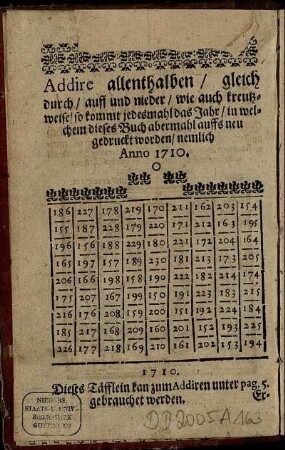 Addire allenthalben / gleich
durch / auff und nieder / wie auch kreutz-
weise / so kommt jedesmahl das Jahr / in wel-
chem dieses Buch abermahl auffs neu
gedruckt worden / nemlich
Anno 1710.
186 227 178 219 170 211 162 203 154
155 187 228 179 220 171 212 163 195
196 156 188 229 180 221 172 204 164
165 197 157 189 230 181 213 173 205
206 166 198 158 190 222 182 214 174
175 207 167 199 150 191 223 183 215
216 176 208 159 200 151 192 224 184
185 217 168 209 160 201 152 193 225
226 177 218 169 210 161 202 153 194
1710.
Dieses Täfflein kan zum Addiren unter pag. 5.
gebrauchet werden.
Er-
NIEDERS.
STAATS- U. UNIV.-
BIBLIOTHEK
GÖTTINGEN
DD2005 A 163